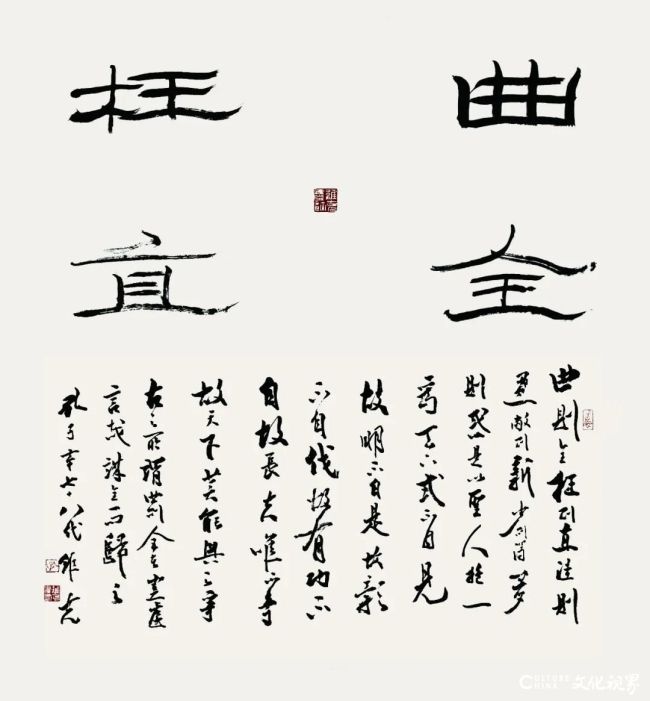 曲全
枉直
曲則全枉則直洼則
盈敝則新少則得多
則惑是以聖人抱一
為天下式不自見
故明不自是故彰
不自伐故有功不
自故長夫唯不争
故天下莫能與之争
古之所謂曲則全者豈虛
言哉誠全而歸之
孔子七十八代維
CULTURE CHINA 文化视界